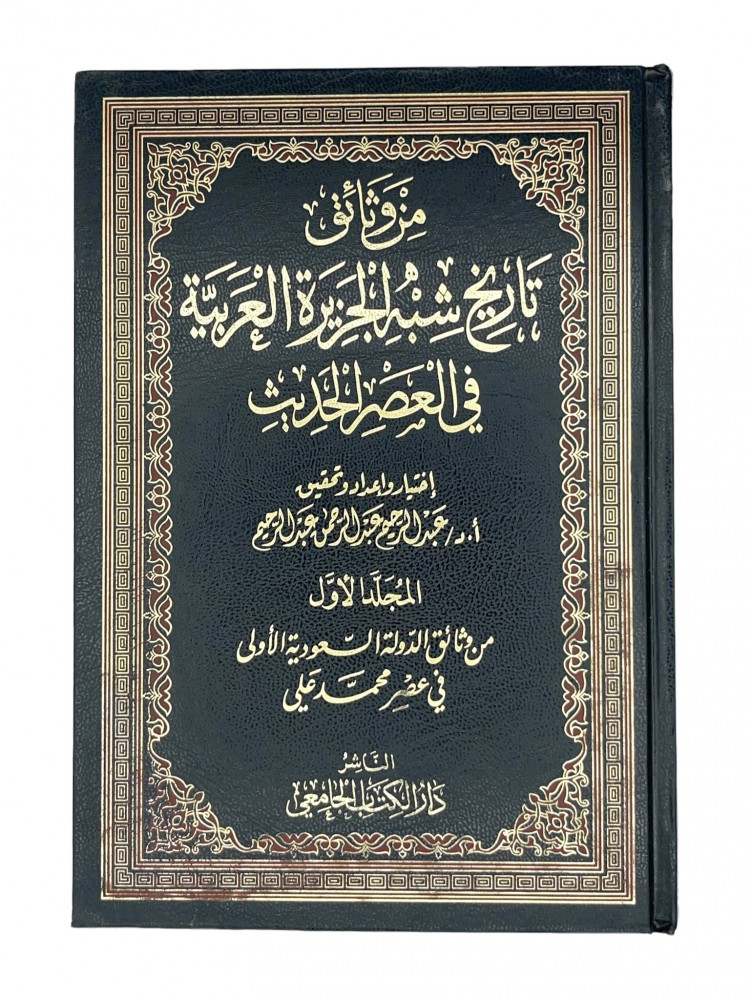 من وثائق
تاريخ شبه الجزيرة العربية
في العصر الحديث
إختيار وإعداد وتحقيق
أ.د/ عبد الرحيم عبد الرحمن عبد الرحيم
المجلد الأول
من وثائق الدولة السعودية الأولى
في عصر محمد علي
الناشر
دار الكتاب الجامعي